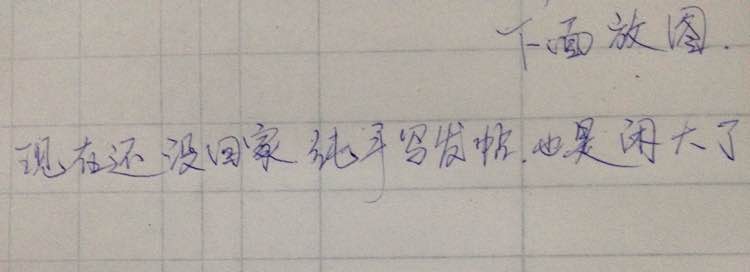 下面放图.
现在还没回家 纯手写发帖.也是闲大了